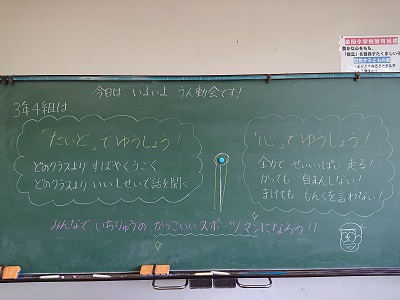 今日は、いよいよ うん動会です!
3年4組は
「たいど」でゆうしょう!
どのクラスより すばやくうごく
どのクラスより いいしせいで話を聞く
「心」でゆうしょう!
全力で せいいっぱい 走る!
かっても 自まんしない!
まけても もんくを言わない!
みんなで いちりゅうの かっこいいスポーツマンになろう!!